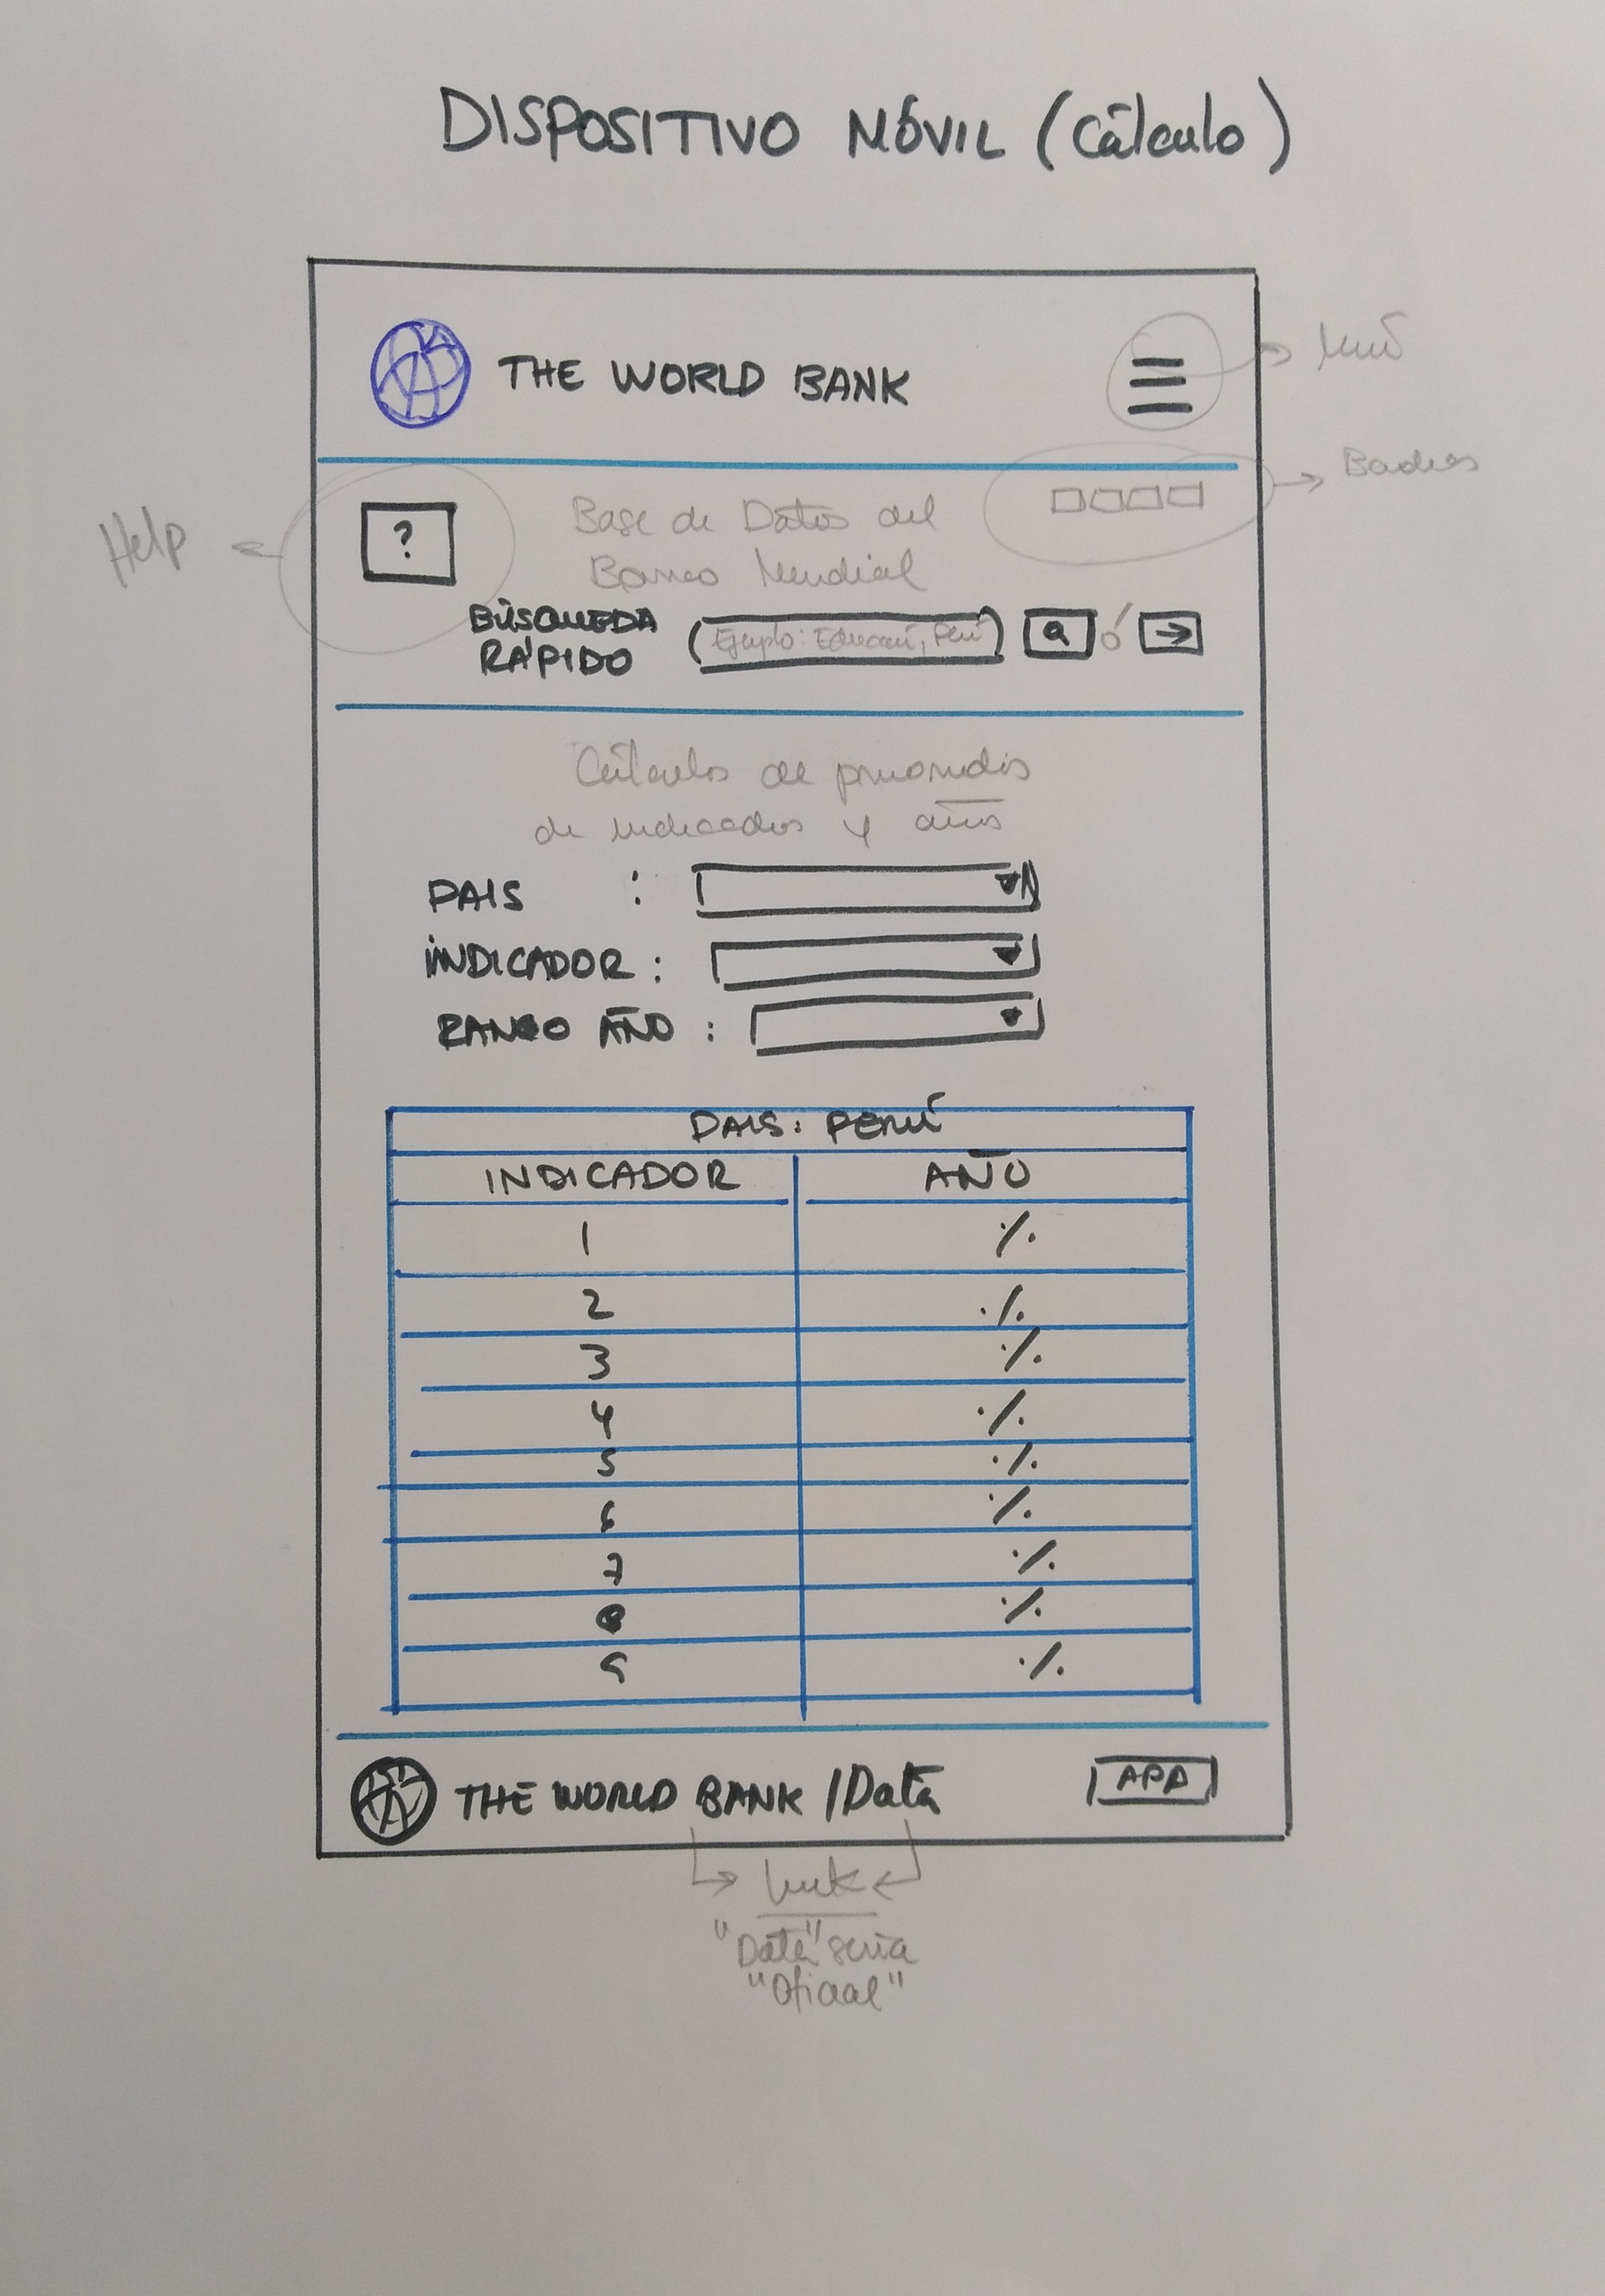 DISPOSITIVO MÓVIL (Cálculo)
THE WORLD BANK
Menú
?
Base de Datos del
Banco Mundial
Help
BÚSQUEDA
RÁPIDO
Ejemplo: Educación, Perú
ó →
Cálculos de
de indicados y años
PAIS :
INDICADOR :
RANGO AÑO :
PAIS: PERÚ
INDICADOR AÑO
1 %
2 %
3 %
4 %
5 %
6 %
7 %
8 %
9 %
THE WORLD BANK /Data APP
→ link ←
"Data" seria
"Oficial"